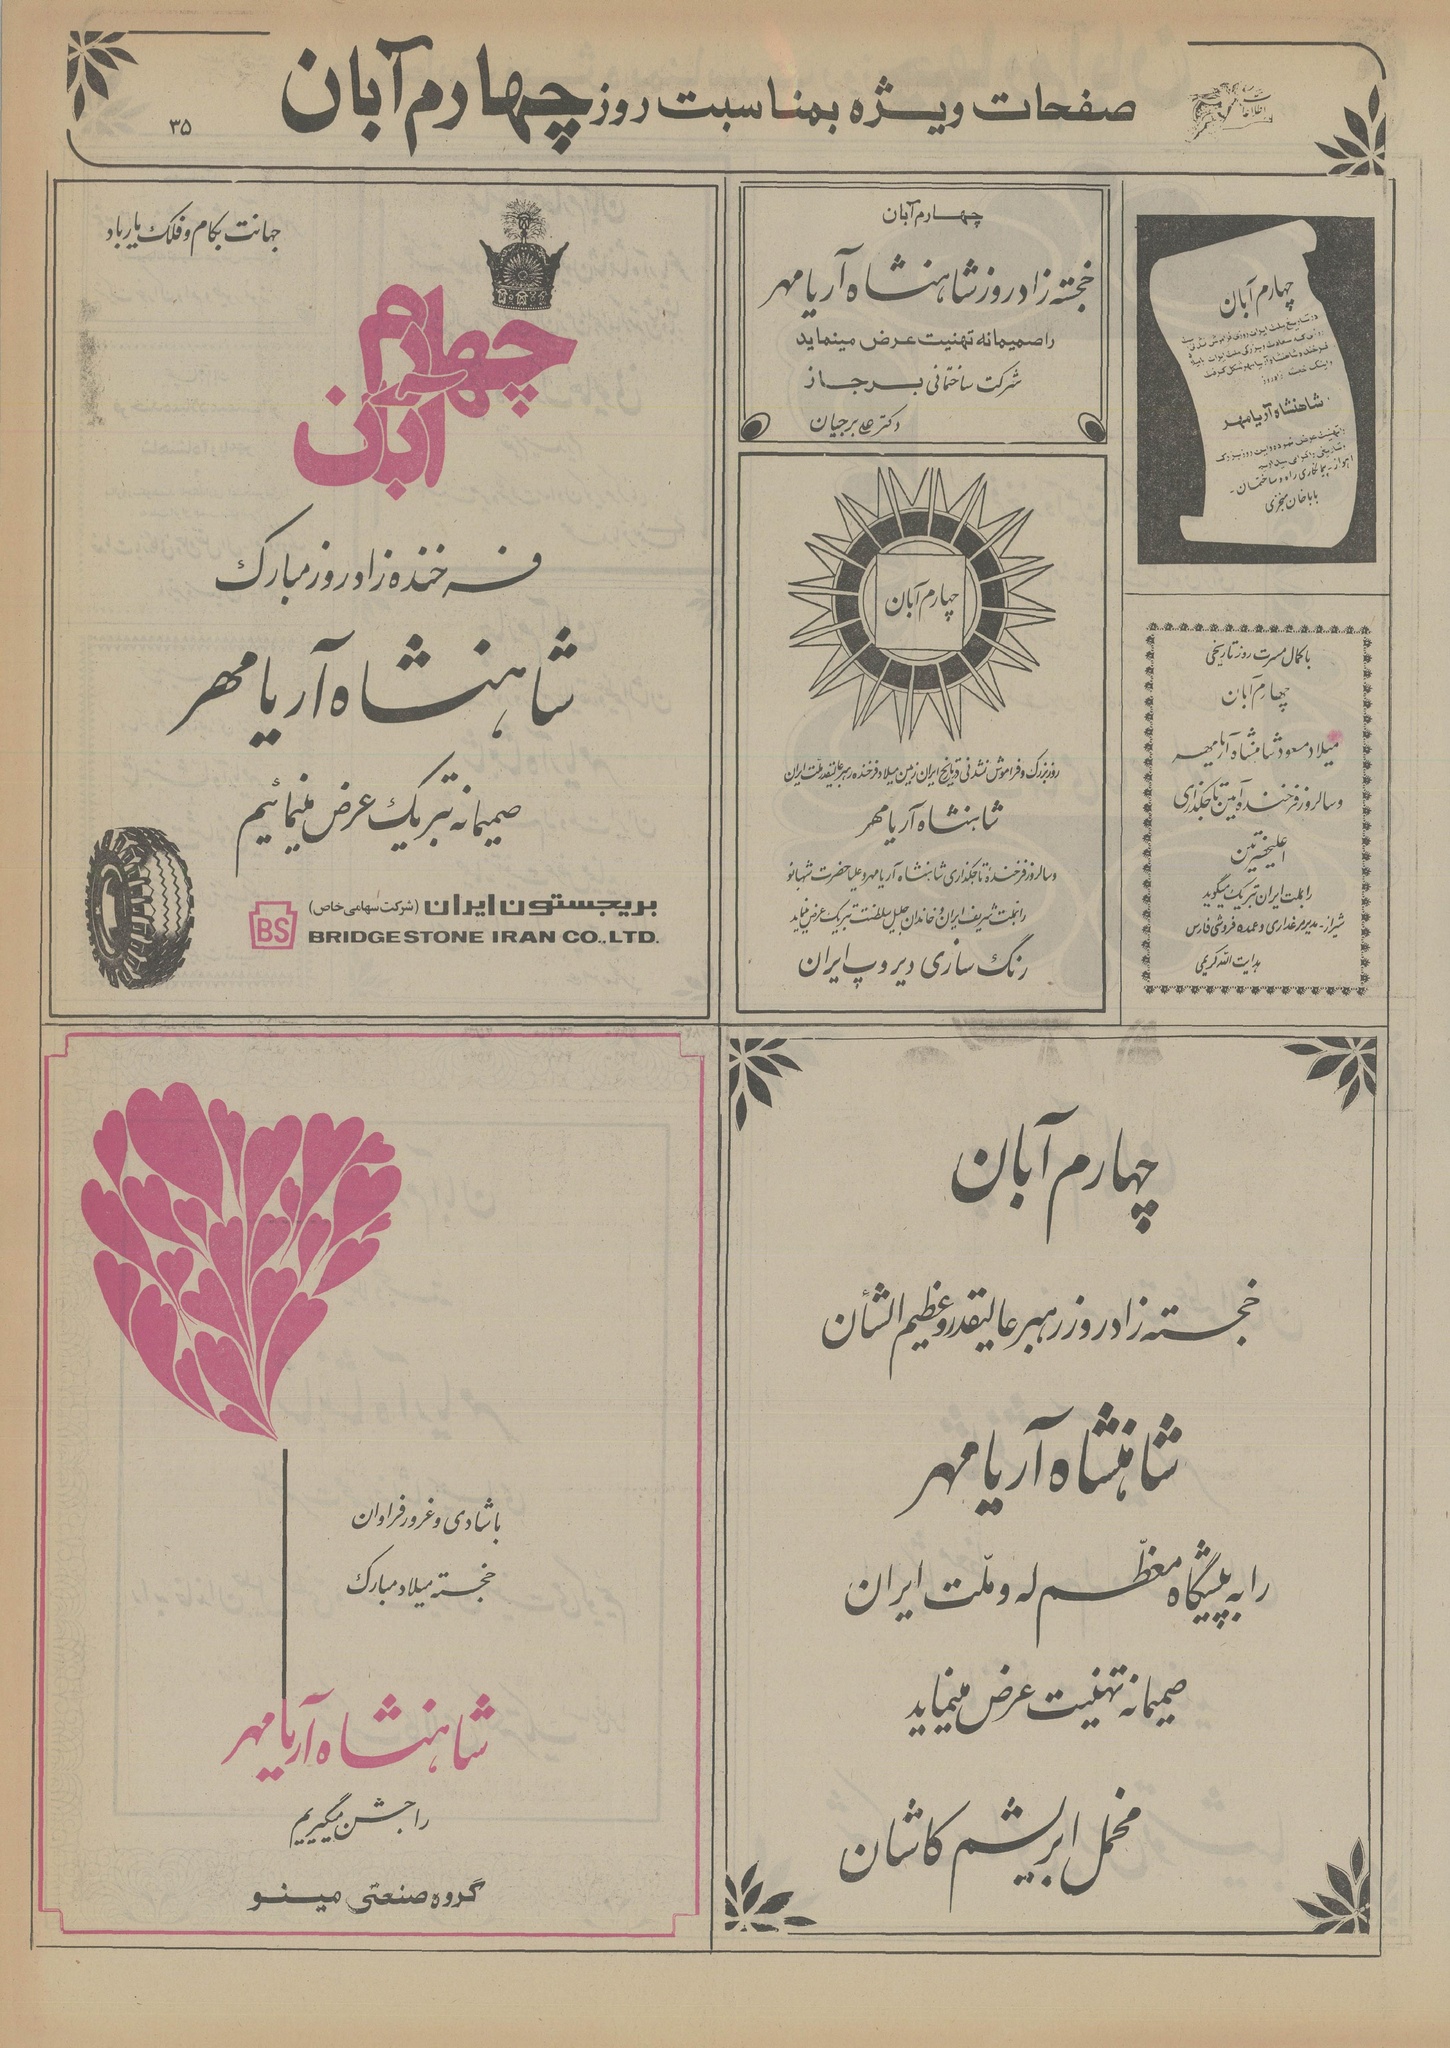 صفحات ویژه بمناسبت روز چهارم آبان
۳۵
چهارم آبان
شاهنشاه آریامهر
چهارم آبان
خجسته زادروز شاهنشاه آریامهر
را صمیمانه تهنیت عرض مینماید
شرکت ساختمانی برجاز
دکتر علی برجیان
جهانت بکام و فلک یار باد
چهارم آبان
فرخنده زادروز مبارک
شاهنشاه آریامهر
صمیمانه تبریک عرض مینمائیم
بریجستون ایران (شرکت سهامی خاص)
BS
BRIDGESTONE IRAN CO.,LTD.
چهارم آبان
روز بزرگ و فراموش نشدنی تاریخ ایران زمین میلاد فرخنده رهبر عالیقدر ملت ایران
شاهنشاه آریامهر
و سالروز فرخنده تاجگذاری شاهنشاه آریامهر و علیاحضرت شهبانو
را بملت شریف ایران و خاندان جلیل سلطنت تبریک عرض مینماید
رنگ سازی دیروپ ایران
با کمال مسرت روز تاریخی
چهارم آبان
میلاد مسعود شاهنشاه آریامهر
و سالروز فرخنده آئین تاجگذاری
اعلیحضرتین
را بملت ایران تبریک میگوید
شیراز- مدیر مرغداری و عمده فروشی فارس
هدایت الله کریمی
چهارم آبان
خجسته زادروز رهبر عالیقدر و عظیم الشأن
شاهنشاه آریامهر
را به پیشگاه معظم له و ملّت ایران
صمیمانه تهنیت عرض مینماید
مخمل ابریشم کاشان
با شادی و غرور فراوان
خجسته میلاد مبارک
شاهنشاه آریامهر
را جشن میگیریم
گروه صنعتی مینو